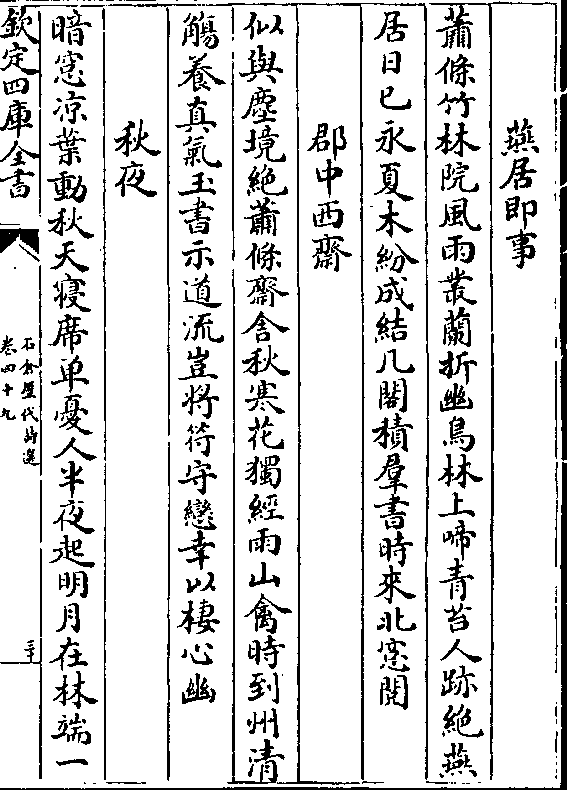 燕居即事
蕭條竹林院風雨叢蘭折幽鳥林上啼青苔人跡絕燕
居日已永夏木紛成結几閣積羣書時來北窓閱
郡中西齋
似與塵境絕蕭條齋舍秋寒花獨經雨山禽時到州清
觴養真氣玉書示道流豈將符守戀幸以棲心幽
秋夜
暗窓凉葉動秋天寝席单憂人半夜起明月在林端一
欽定四庫全書
石倉歷代詩選
卷四十九
二十